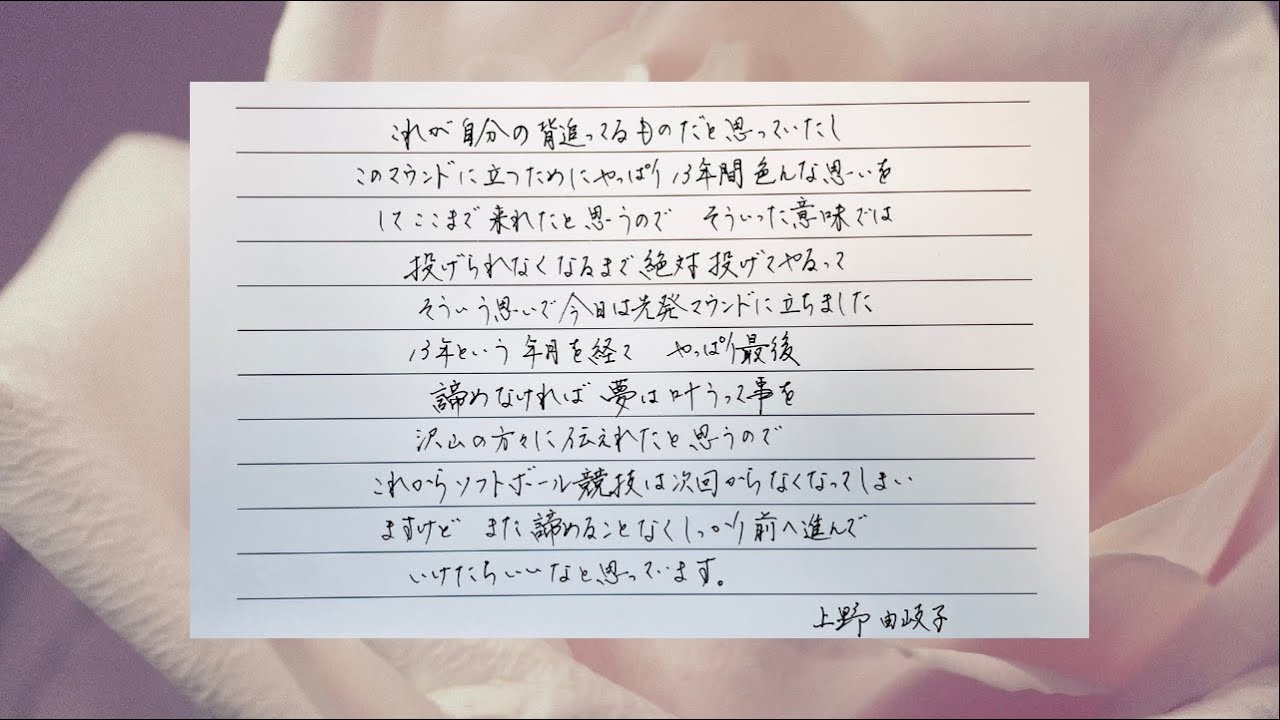 これが自分の背追ってるものだと思っていたし
このマウンドに立つためにやっぱり13年間色んな思いを
してここまで来れたと思うので そういった意味では
投げられなくなるまで絶対投げてやるって
そういう思いで今日は先発マウンドに立ちました
13年という年月を経て やっぱり最後
諦めなければ夢は叶うって事を
沢山の方々に伝えれたと思うので
これからソフトボール競技は次回からなくなってしまい
ますけど また諦めることなくしっかり前へ進んで
いけたらいいなと思っています。
上野由岐子